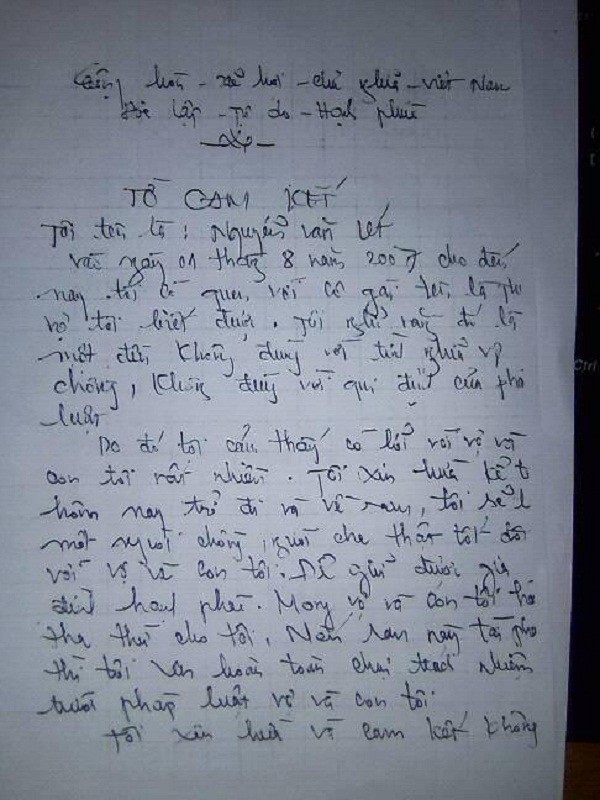 Cộng hoà - xã hoi - chủ nghĩa - việt Nam
Độc lập - Tự do - Hạnh phúc
TỜ CAM KẾT
Tôi tên là : Nguyễn văn Lết
Vào ngày 01 tháng 8 năm 2007 cho đến
nay tôi có quen với cô gái tên là
vợ tôi biết được. Tôi nghĩ rằng đó là
một điều không đúng với tình nghĩa vợ
chồng, Không đúng với qui định của phá
luật
Do đó tôi cảm thấy có lỗi với vợ và
con tôi rất nhiều. Tôi xin hứa kể t
hôm nay trở đi và về sau, tôi sẽ l
một người chồng, người cha thật tốt đối
với vợ và con tôi. Để giữ được gia
đình hạnh phúc. Mong vợ và con tôi
tha thứ cho tôi. Nếu sau này tái
thì tôi hoàn toàn chịu trách nhiệm
trước pháp luật vợ và con tôi
Tôi xin hứa và cam kết không
Ctrl